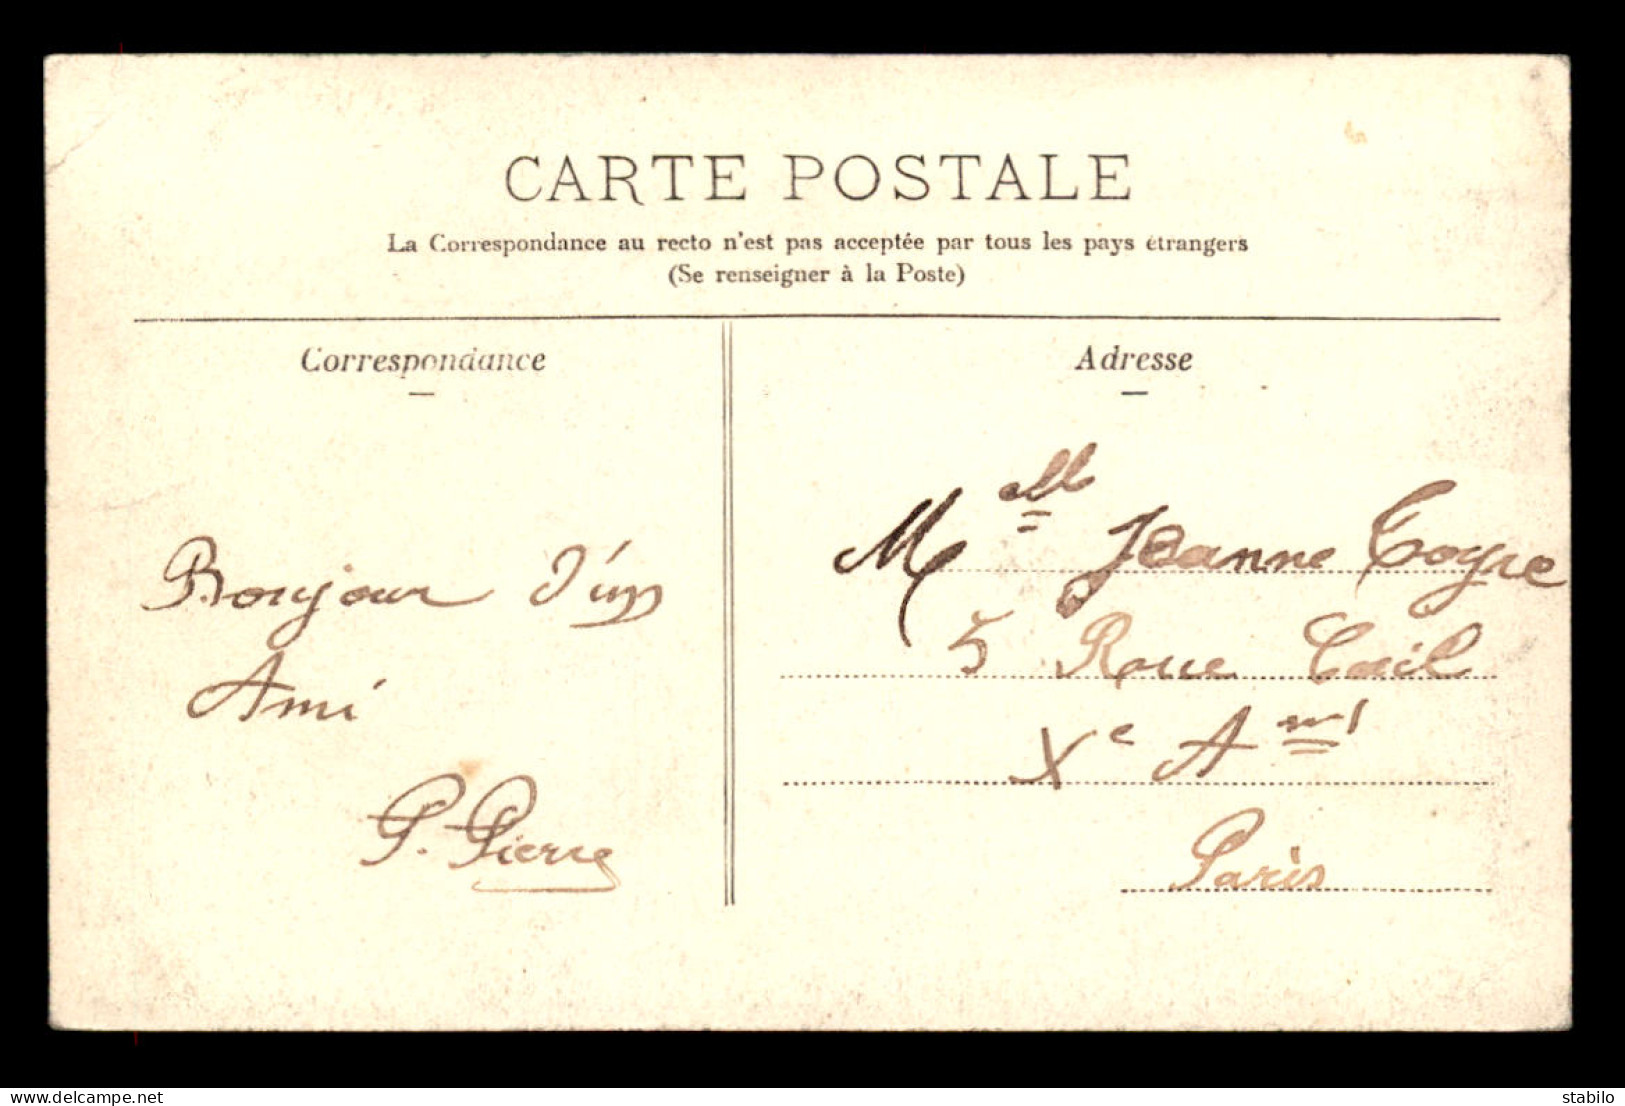 CARTE POSTALE
La Correspondance au recto n'est pas acceptée par tous les pays étrangers
(Se renseigner à la Poste)
Correspondance
Bonjour d'un
Ami
P. Pierre
Adresse
Mell Jeanne Coyre
5 Roue Cail
Xe Amt
Paris
delcampe.net
stabilo